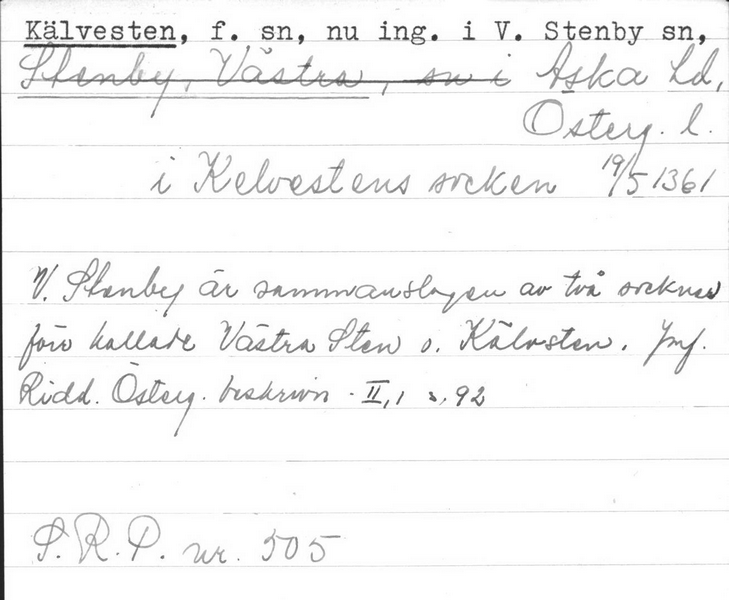 Kälvesten, f. sn, nu ing. i V. Stenby sn,
Stenby, Västra, sn i Aska hd,
Österg. l.
i Kelvestens socken 19/5 1361
V. Stenby är sammanslagen av två socknar
förr kallade Västra Sten o. Kälvsten. Jmf.
Ridd. Österg. beskrivn. II,1 s. 92
S.R.P. nr. 505